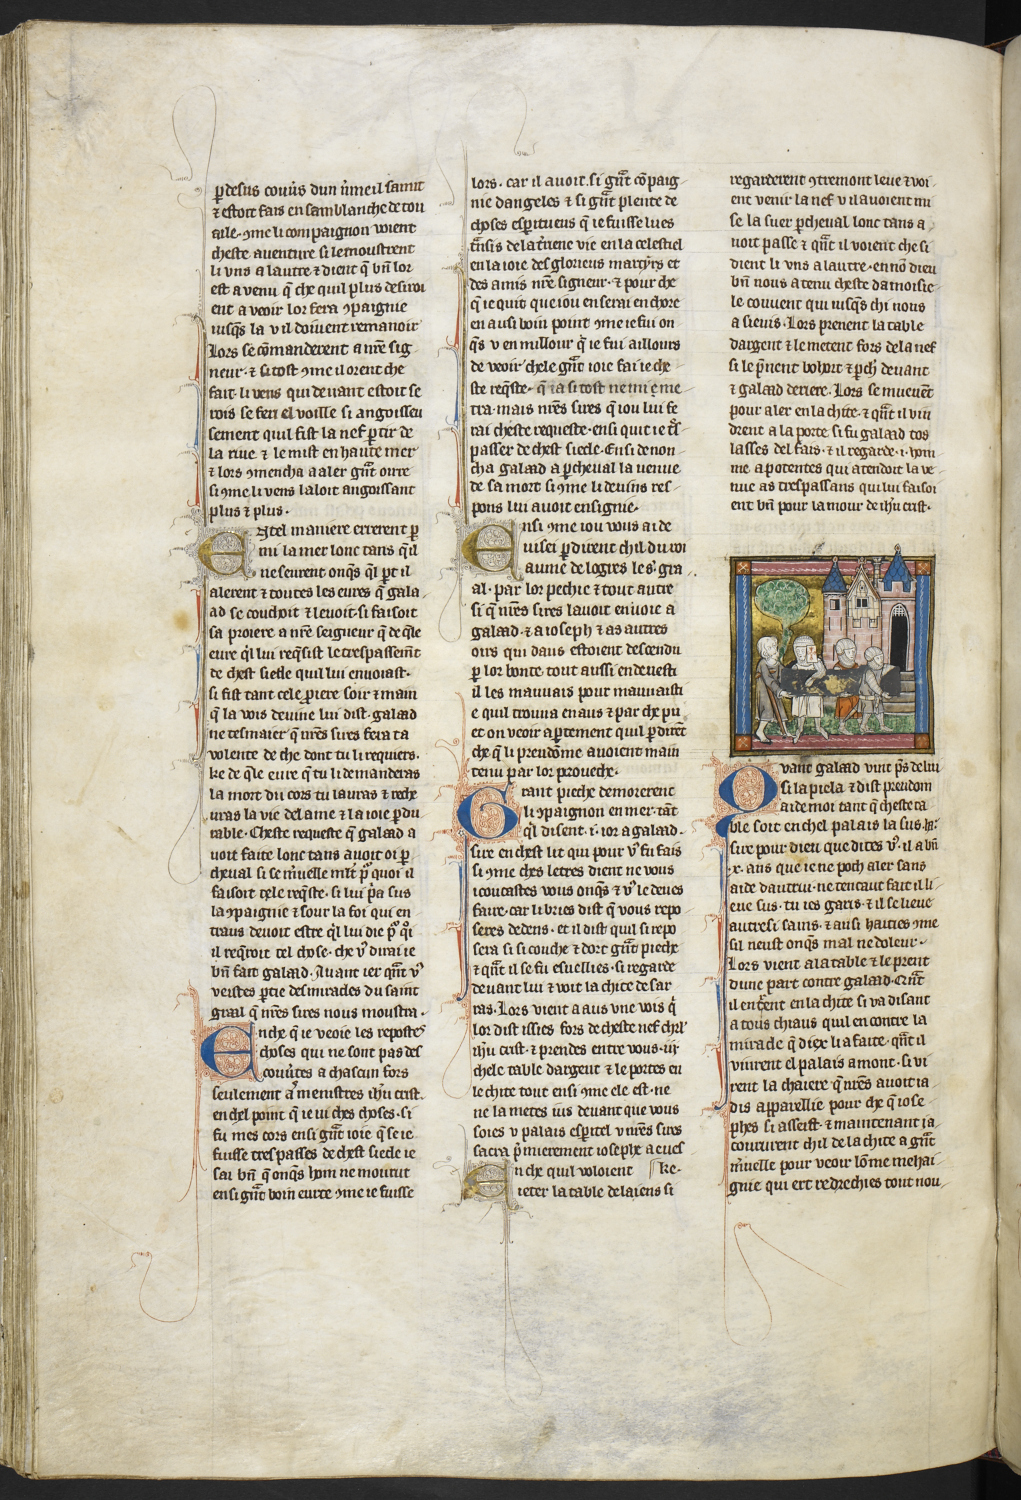 ꝑ desus couu̇s dun u̇meil samit
⁊ estoit fais en samblanche de tou
aile · ꝯme li compaignon voient
cheste auenture si le moustrent
li vns a lautre ⁊ dient q̃ bñ lor
est auenu q̃ che quil plus desiroi
ent a veoir lor fera ꝯpaignie
iusqs̃ la v il doiuent remanoir
Lors se cõmanderent a nr̃e sig
neur · ⁊ si tost ꝯme il orent che
fait · li vens qui deuant estoit se
rois se feri el voille si angoisseu
sement quil fist la nef ꝑtir de
la riue ⁊ le mist en haute mer
⁊ lors ꝯmencha a aler gñt oirre
si ꝯme li vens laloit angoissant
plus ⁊ plus ·
En tel maniere errerent ꝑ
mi la mer lonc tans q̃ il
ne seurent onqs̃ q̃l ꝑt il
alerent ⁊ toutes les eures q̃ gala
ad se couchoit ⁊ leuoit · si faisoit
sa proiere a nr̃e seigneur q̃ de q̃le
eure q̃l lui reqͥsist le trespassemt̃
de chest siecle quil lui enuoiast ·
si fist tant cele pͥere soir ⁊ main
q̃ la vois deuine lui dist · galaad
ne tesmaier q̃ nr̃es sires fera ta
volente de che dont tu li requiers ·
ke de q̃le eure q̃ tu li demanderas
la mort du cors tu lauras ⁊ reche
uras la vie del ame ⁊ la ioie ꝑdu
rable · Cheste requeste q̃ galaad a
uoit faite lonc tans auoit oi ꝑ
cheual si se mu̇elle mlt̃ pͦ quoi il
faisoit tele reqs̃te · si lui pͥa sus
la ꝯpaignie ⁊ sour la foi qui en
traus deuoit estre q̃l lui die pͦ qͦi
il reqͥroit tel chose · che vͦ dirai ie
bñ fait galaad · Auant ier qñt vͦ
veistes ꝑtie des miracles du saint
graal q̃ nr̃es sires nous moustra ·
Enche q̃ ie veoie les repostes
choses qui ne sont pas des
couu̇tes a chascun fors
seulement aˢ menistres ih̃u crist ·
en chel point q̃ ie vi ches choses · si
fu mes cors en si gñt ioie q̃ se ie
fuisse trespasses de chest siecle ie
sai bñ q̃ onqs̃ hom ne mourut
en si gñt boin eurte ꝯme ie fuisse
lors · car il auoit · si gñt cõpaig
nie dangeles ⁊ si gñt plente de
choses esꝑitueus q̃ ie fuisse lues
tñsis de la tr̃iene vie en la celestiel
en la ioie des glorieus martyrs et
des amis nr̃e signeur · ⁊ pour che
q̃ ie quit que iou en serai en chore
en ausi boin point ꝯme ie fui on
qs̃ v en millour q̃ ie fui aillours
de veoir chele gñt ioie fai ie che
ste reqs̃te · q̃ ia si tost ne mi eme
tra · mais nr̃es sires q̃ iou lui fe
rai cheste requeste · ensi quit ie t̃s
passer de chest siecle · Ensi denon
cha galaad a ꝑcheual la venue
de sa mort si ꝯme li deuins res
pons lui auoit ensignie ·
Ensi ꝯme iou vous ai de
uisei ꝑdirent chil du roi
aume de logres le sͭ gra
al · par lor pechie ⁊ tout autre
si q̃ nr̃es sires lauoit enuoie a
galaad · ⁊ a ioseph ⁊ as autres
oirs qui daus estoient descendu
ꝑ lor bonte · tout aussi en deuesti
il les mauuais pour mauuaisti
e quil trouua en aus ⁊ par che pu
et on veoir aꝑtement quil ꝑdirẽt
che q̃ li preudõme auoient main
tenu par lor proueche ·
Grant pieche demorerent
li ꝯpaignon en mer · tãt
q̃l disent · i · ior a galaad ·
sire en chest lit qui pour vͦ fu fais
si ꝯme ches letres dient ne vous
i coucastes vous onqs̃ ⁊ vͦ le deues
faire · car li bries dist q̃ vous repo
seres dedens · et il dist quil si repo
sera si si couche ⁊ dort gñt pieche
⁊ qñt il se fu esuellies · si regarde
deuant lui ⁊ voit la chite de sar
ras · Lors vient a aus vne vois q̃
lor dist issies fors de cheste nef chr̃l
ih̃u crist · ⁊ prendes entre vous · iij
chele table dargent ⁊ le portes en
le chite tout ensi ꝯme ele est · ne
ne la metes ius deuant que vous
soies v palais esꝑitel v nr̃es sires
sacra pͥmierement iosephe a eues
En che quil voloient ke ·
ieter la table de laiens si
regarderent ꝯtremont leue ⁊ voi
ent venir la nef v il auoient mi
se la suer ꝑcheual lonc tans a
uoit passe ⁊ qñt il voient che si
dient li vns a lautre · en nõ dieu
bñ nous a tenu cheste damoisie
le couuent qui iusqs̃ chi nous
a sieuis · Lors prenent la table
dargent ⁊ le metent fors de la nef
si le pͥnent bohort ⁊ ꝑch̃ deuant
⁊ galaad deriere · Lors se mueuẽt
pour aler en la chite · ⁊ qñt il vin
drent a la porte si fu galaad tos
lasses del fais · ⁊ il regarde · i · hom
me a potentes qui atendoit la ve
nue as trespassans qui lui faisoi
ent bñ pour lamour de ih̃u crist ·
Quant galaad vint pͥs de lui
si lapiela ⁊ dist preudom
aide moi tant q̃ cheste ta
ble soit en chel palais la sus · ha ·
sire pour dieu que dites vͦ · il a bñ
· x · ans que ie ne poch aler sans
aide dautrui · ne ten caut fait il li
eue sus · tu ies garis · ⁊ il se lieue
autresi sains · ⁊ ausi haities ꝯme
sil neust onqs̃ mal ne doleur ·
Lors vient a la table ⁊ le prent
dune part contre galaad · Qñt
il entͥent en la chite si va disant
a tous chiaus quil encontre la
miracle q̃ diex li a faite · qñt il
vinrent el palais amont · si vi
rent la chaiere q̃ nr̃es auoit ia
dis apparellie pour che q̃ iose
phes si asseist · ⁊ maintenant ia
coururent chil de la chite a gñt
mu̇elle pour veoir lõme mehai
gnie qui ert redrechies tout nou